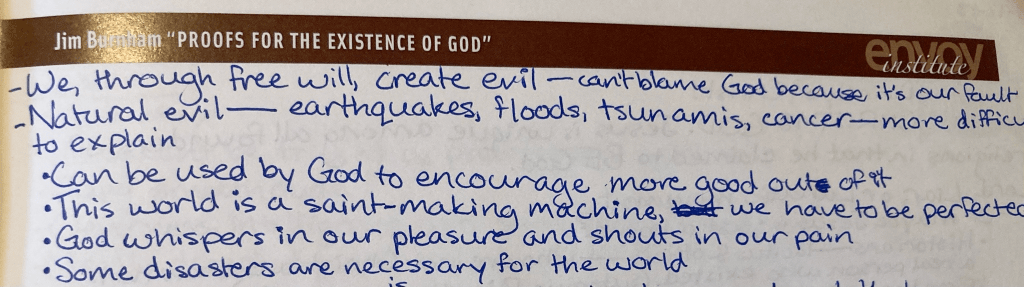 Jim Burnham "PROOFS FOR THE EXISTENCE OF GOD"
envoy
institute
- We, through free will, create evil — can't blame God because it's our fault
- Natural evil — earthquakes, floods, tsunamis, cancer — more difficu
to explain
• Can be used by God to encourage more good out of it
• This world is a saint-making machine, we have to be perfected
• God whispers in our pleasure and shouts in our pain
• Some disasters are necessary for the world
is